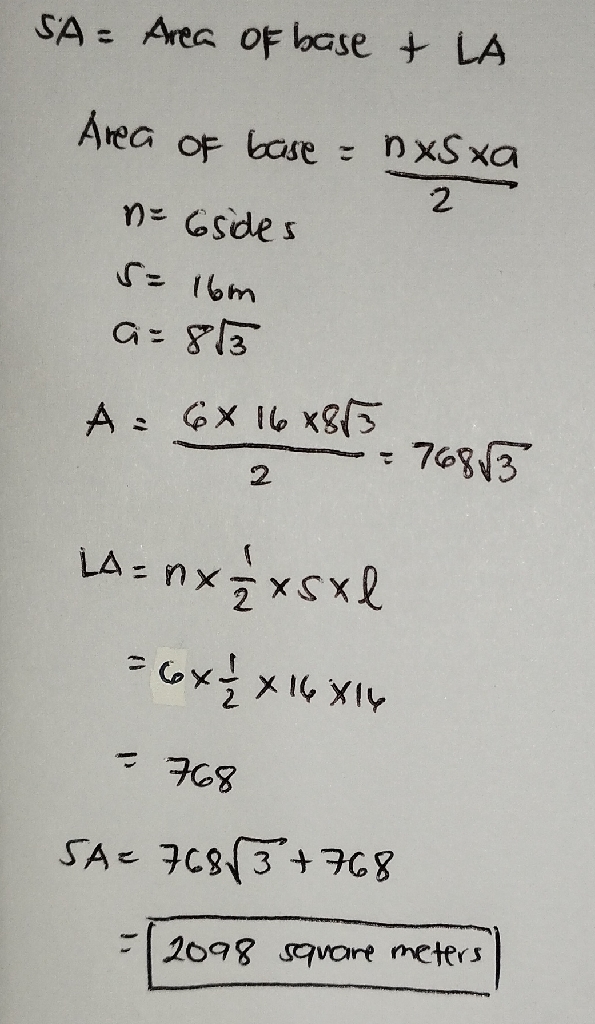 SA = Area OF base + LA
Area OF base = n×S×a / 2
n = 6sides
S = 16m
a = 8√3
A = 6 × 16 ×8√3 / 2 = 768√3
LA = n × 1/2 × s × l
= 6 × 1/2 × 16 × 16
= 768
SA = 768√3 + 768
= 2098 square meters